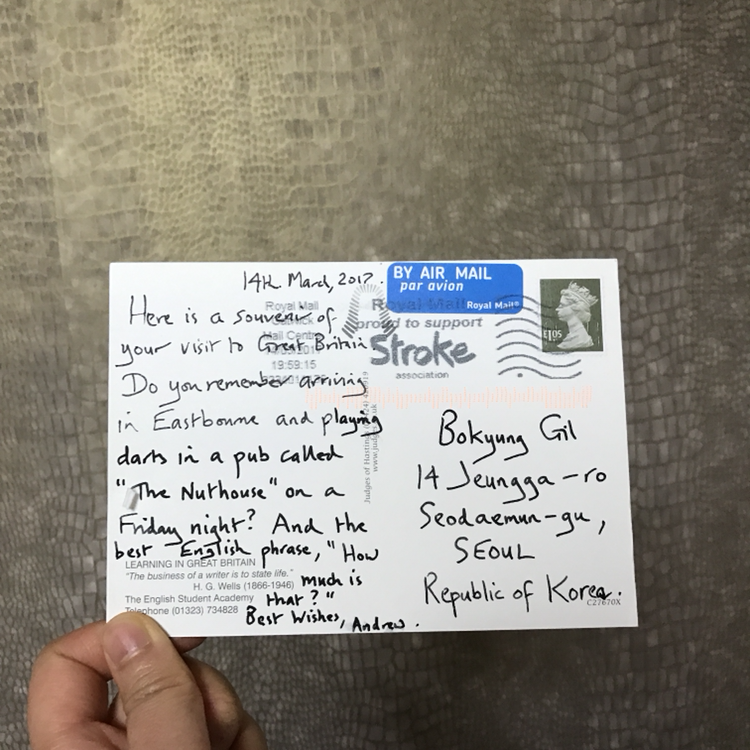 14th March, 2017.
Here is a souvenir of
your visit to Great Britain
Do you remember arriving
in Eastbourne and playing
darts in a pub called
"The Nuthouse" on a
Friday night? And the
best English phrase, "How
much is
that?"
Best Wishes, Andrew.
LEARNING IN GREAT BRITAIN
"The business of a writer is to state life."
H. G. Wells (1866-1946)
The English Student Academy
Telephone (01323) 734828
Royal Mail
Mail Centre
19:59:15
Judges of Hastings
www.judges
BY AIR MAIL
par avion
Royal Mail®
Royal Mail
proud to support
Stroke
association
£1.05
Bokyung Gil
14 Jeungga-ro
Seodaemun-gu,
SEOUL
Republic of Korea.
C27670X